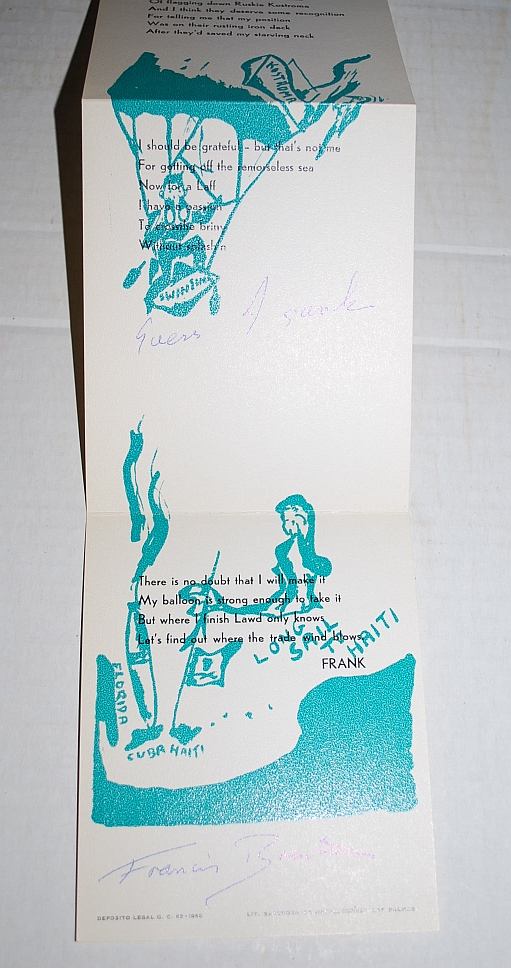 Of flagging down Ruskie Kostroma
And I think they deserve some recognition
For telling me that my position
Was on their rusting iron deck
After they'd saved my starving neck
KOSTROMA
I should be grateful - but that's not me
For getting off the remorseless sea
Now for a Laff
I have a passion
To cross the briny
Without splash'n
Guess I
There is no doubt that I will make it
My balloon is strong enough to take it
But where I finish Lawd only knows
Let's find out where the trade wind blows.
LONG SAIL TO HAITI
FRANK
FLORIDA
CUBA HAITI
Francis
DEPOSITO LEGAL G. C.